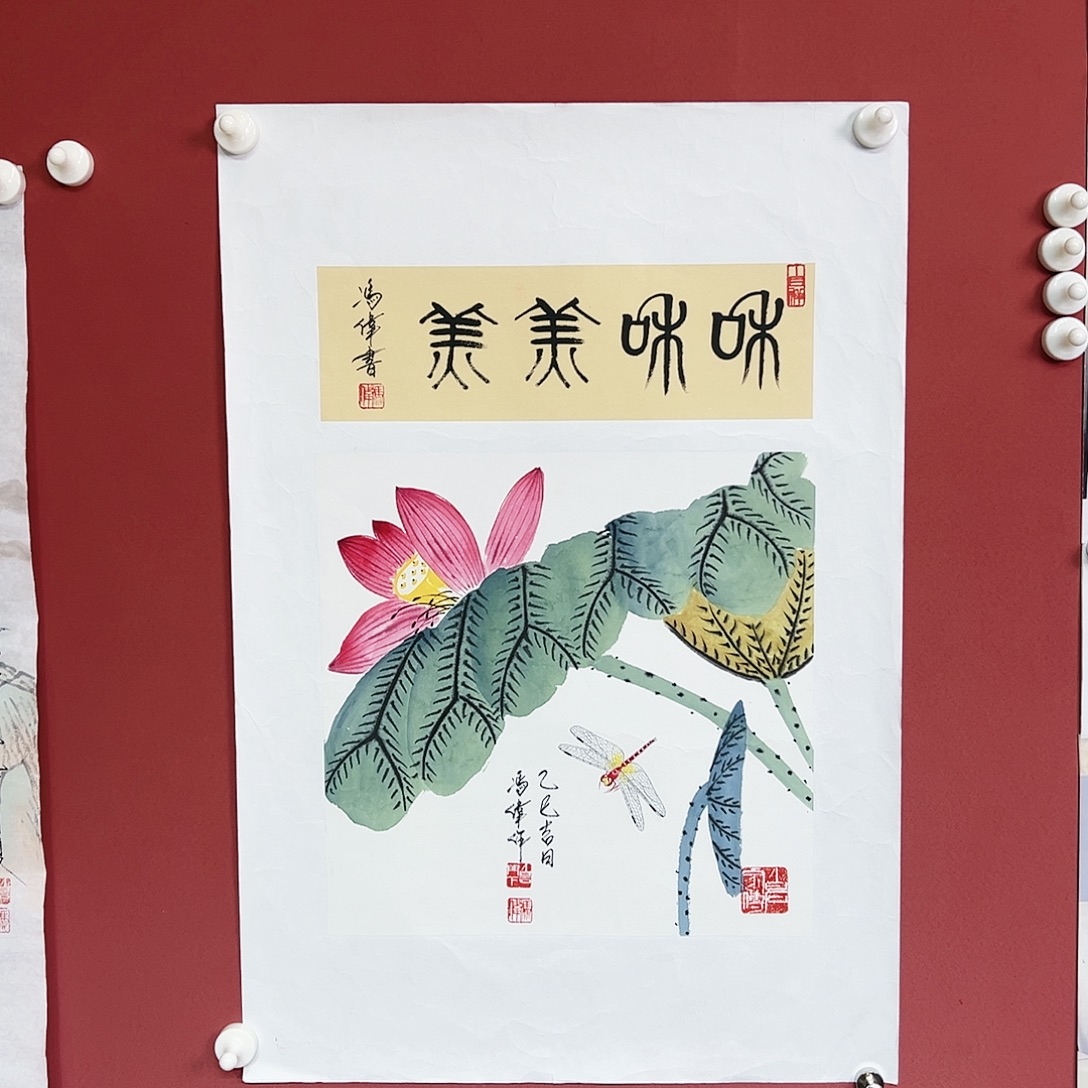 和和美美
馮偉書
乙巳吉日
馮偉作